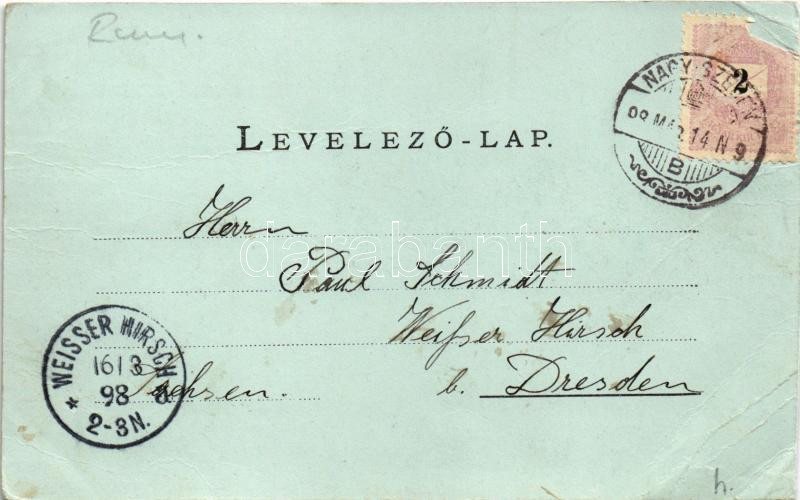 2
NAGY-SZEBEN
98 MÁR 14 N 9
B
LEVELEZŐ-LAP.
Herrn
darabanth
Paul Schmidt
Weisser Hirsch
b. Dresden
Sachsen.
WEISSER HIRSCH
16 / 3
98
2-3N.
h.